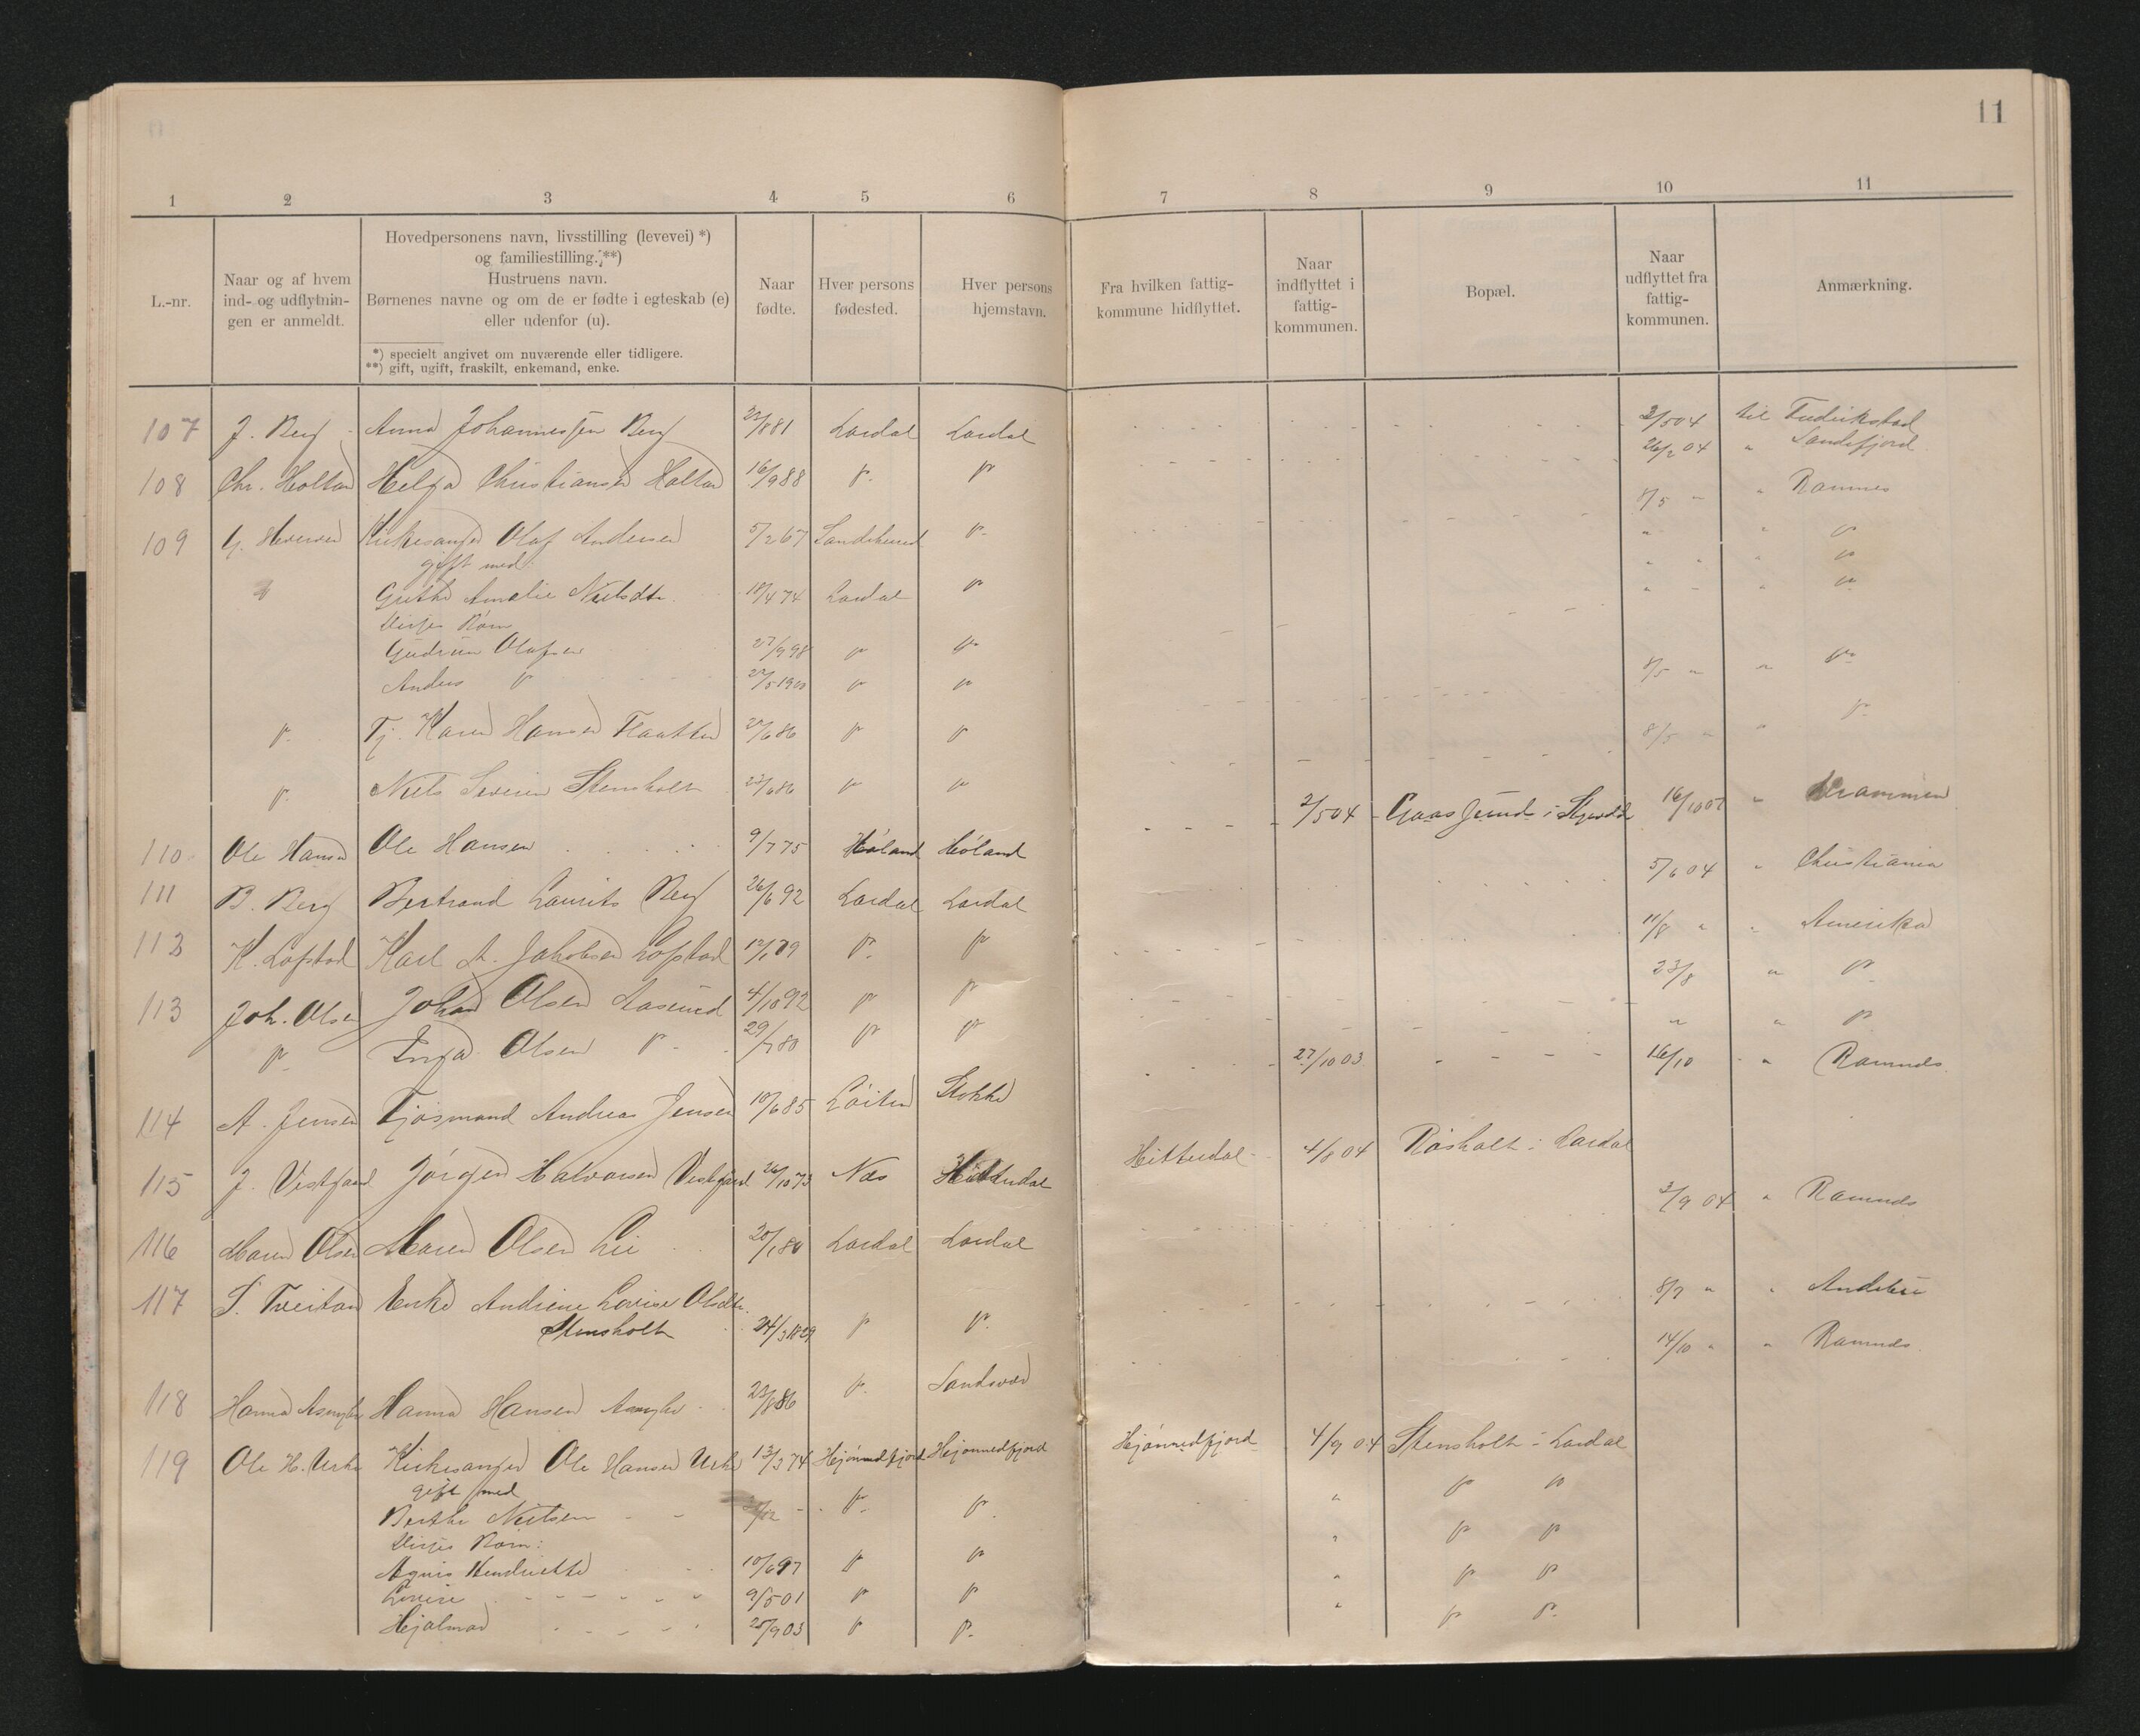 11
1 2 3 4 5 6 7 8 9 10 11
L.-nr.
Naar og af hvem
ind- og udflytnin-
gen er anmeldt.
Hovedpersonens navn, livsstilling (levevei) *)
og familiestilling. **)
Hustruens navn.
Børnenes navne og om de er fødte i egteskab (e)
eller udenfor (u).
*) specielt angivet om nuværende eller tidligere.
**) gift, ugift, fraskilt, enkemand, enke.
Naar
fødte.
Hver persons
fødested.
Hver persons
hjemstavn.
Fra hvilken fattig-
kommune hidflyttet.
Naar
indflyttet i
fattig-
kommunen.
Bopæl.
Naar
udflyttet fra
fattig-
kommunen.
Anmærkning.
107 J. Berg Anna Johannessen Berg 23/8 81 Lardal Lardal 2/5 04 til Fredrikstad
108 Chr. Holtan Helga Christiansen Holtan 16/9 88 " " 26/2 04 " Sandefjord
109 Kirkesanger Olaf Andersen 5/2 67 Sandeherred " 8/5 " " Ramnes
gift med:
Grethe Amalie Nielsdtr. 18/4 74 Lardal " " " "
Disses Børn
Gudrun Olafsen 27/9 98 " " " " "
Anders " 22/5 1900 " " " " "
" Tj. Karen Hansen Flaatten 27/6 86 " " 8/5 " " "
" Niels Severin Stensholt 23/6 86 " " 8/5 " " "
110 Ole Hansen Ole Hansen 9/7 75 Høland Høland 2/5 04 16/10 07 " Drammen
111 B. Berg Bertrand Laurits Berg 26/6 92 Lardal Lardal 5/6 04 " Christiania
112 K. Lofstad Karl A. Jakobsen Lofstad " " 11/8 " " Amerika
113 Joh. Olsen Johan Olsen Aasrud 4/10 92 " " 23/8 " "
" Inga Olsen " 29/7 80 " " " " "
114 A. Jensen Tjosmand Andreas Jensen 10/6 85 Løiten Stokke 27/10 03 16/10 " Ramnes
115 J. Vestgaard Jørgen Halvorsen Vestgaard 26/10 73 Næs Hitterdal Hitterdal 4/8 04 Røsholt i Lardal
116 Maren Olsen Maren Olsen Lie 20/1 84 Lardal Lardal 3/9 04 " Ramnes
117 S. Tveitan Enke Andrine Lovise Olsdtr.
Stensholt 24/3 1829 " " 8/7 " " Andebu
118 Hanna Hansen 23/8 86 " Sandsvær 14/10 " " Ramnes
119 Kirkesanger Ole Hansen 13/3 74 4/9 04 Stensholt i Lardal
gift med
Berthe Nielsen " " " " "
Disses Børn:
Agnes Hendriette 10/6 97 " " " " "
Lovise 9/5 01 " " " " "
Hjalmar 25/9 03 " " " " "